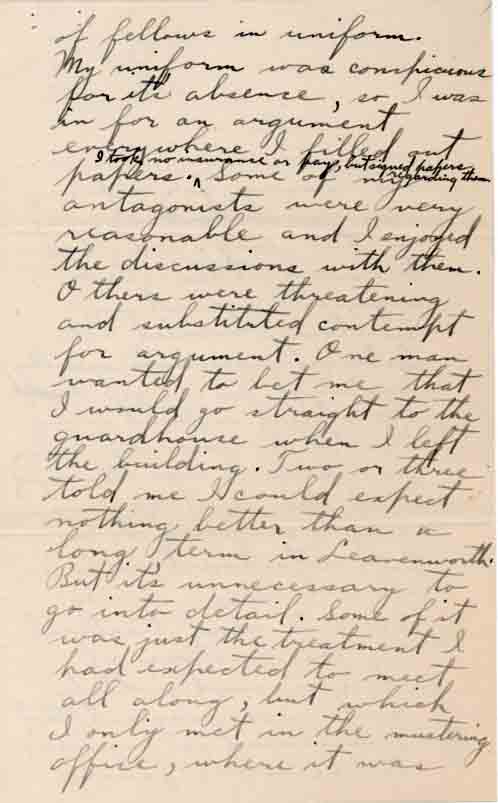 of fellows in uniform.
My uniform was conspicuous
for it's absence, so I was
in for an argument
everywhere I filled out
I took no insurance or pay, but signed papers
regarding them
papers. ^ Some of my
antagonists were very
reasonable and I enjoyed
the discussions with them.
Others were threatening
and substituted contempt
for argument. One man
wanted to bet me that
I would go straight to the
guardhouse when I left
the building. Two or three
told me I could expect
nothing better than a
long term in Leavenworth.
But it's unnecessary to
go into detail. Some of it
was just the treatment I
had expected to meet
all along, but which
I only met in the mustering
office, where it was